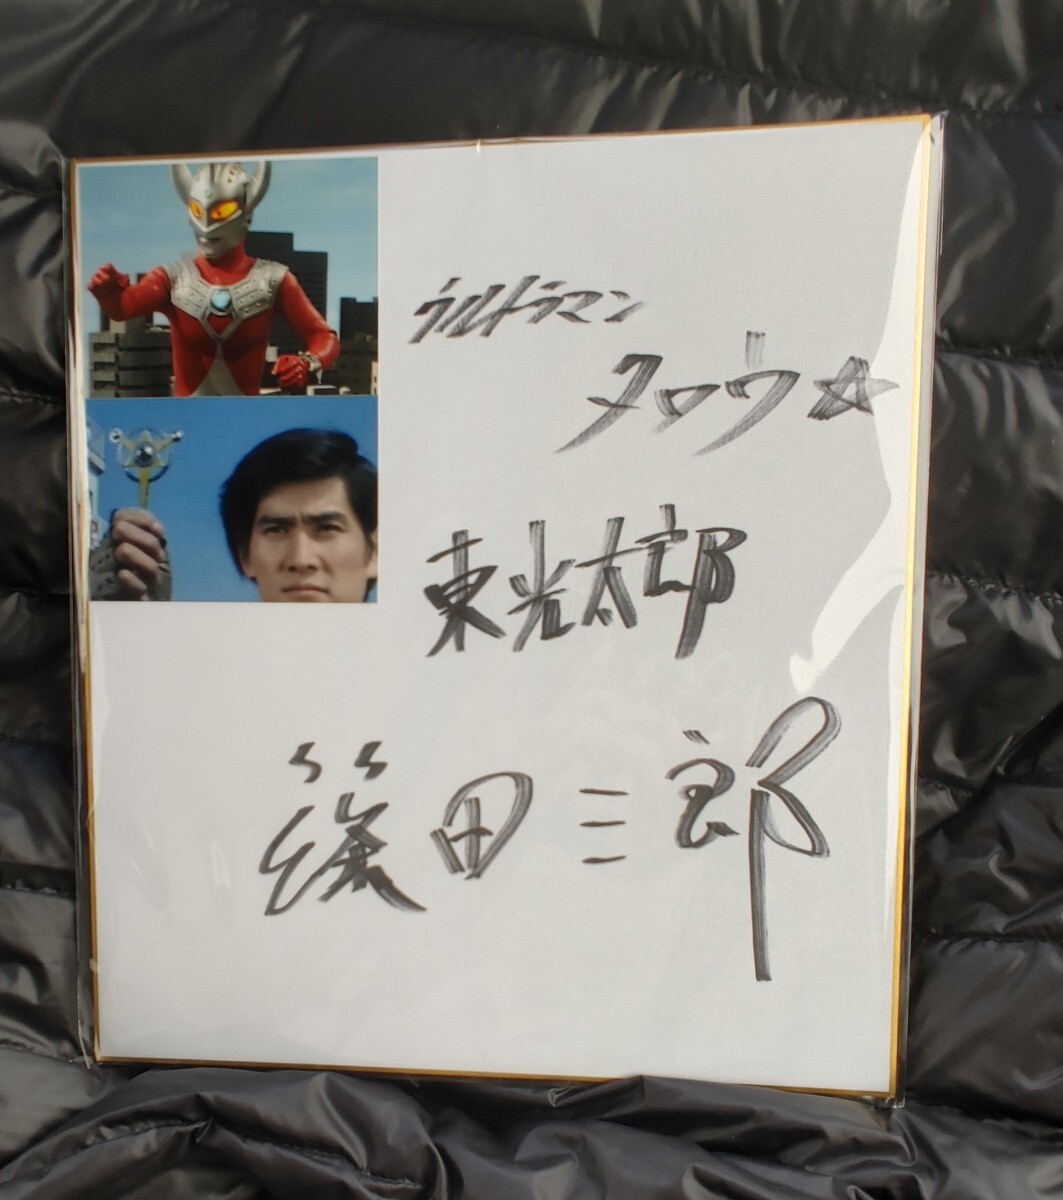 ウルトラマン
タロウ☆
東光太郎
篠田三郎